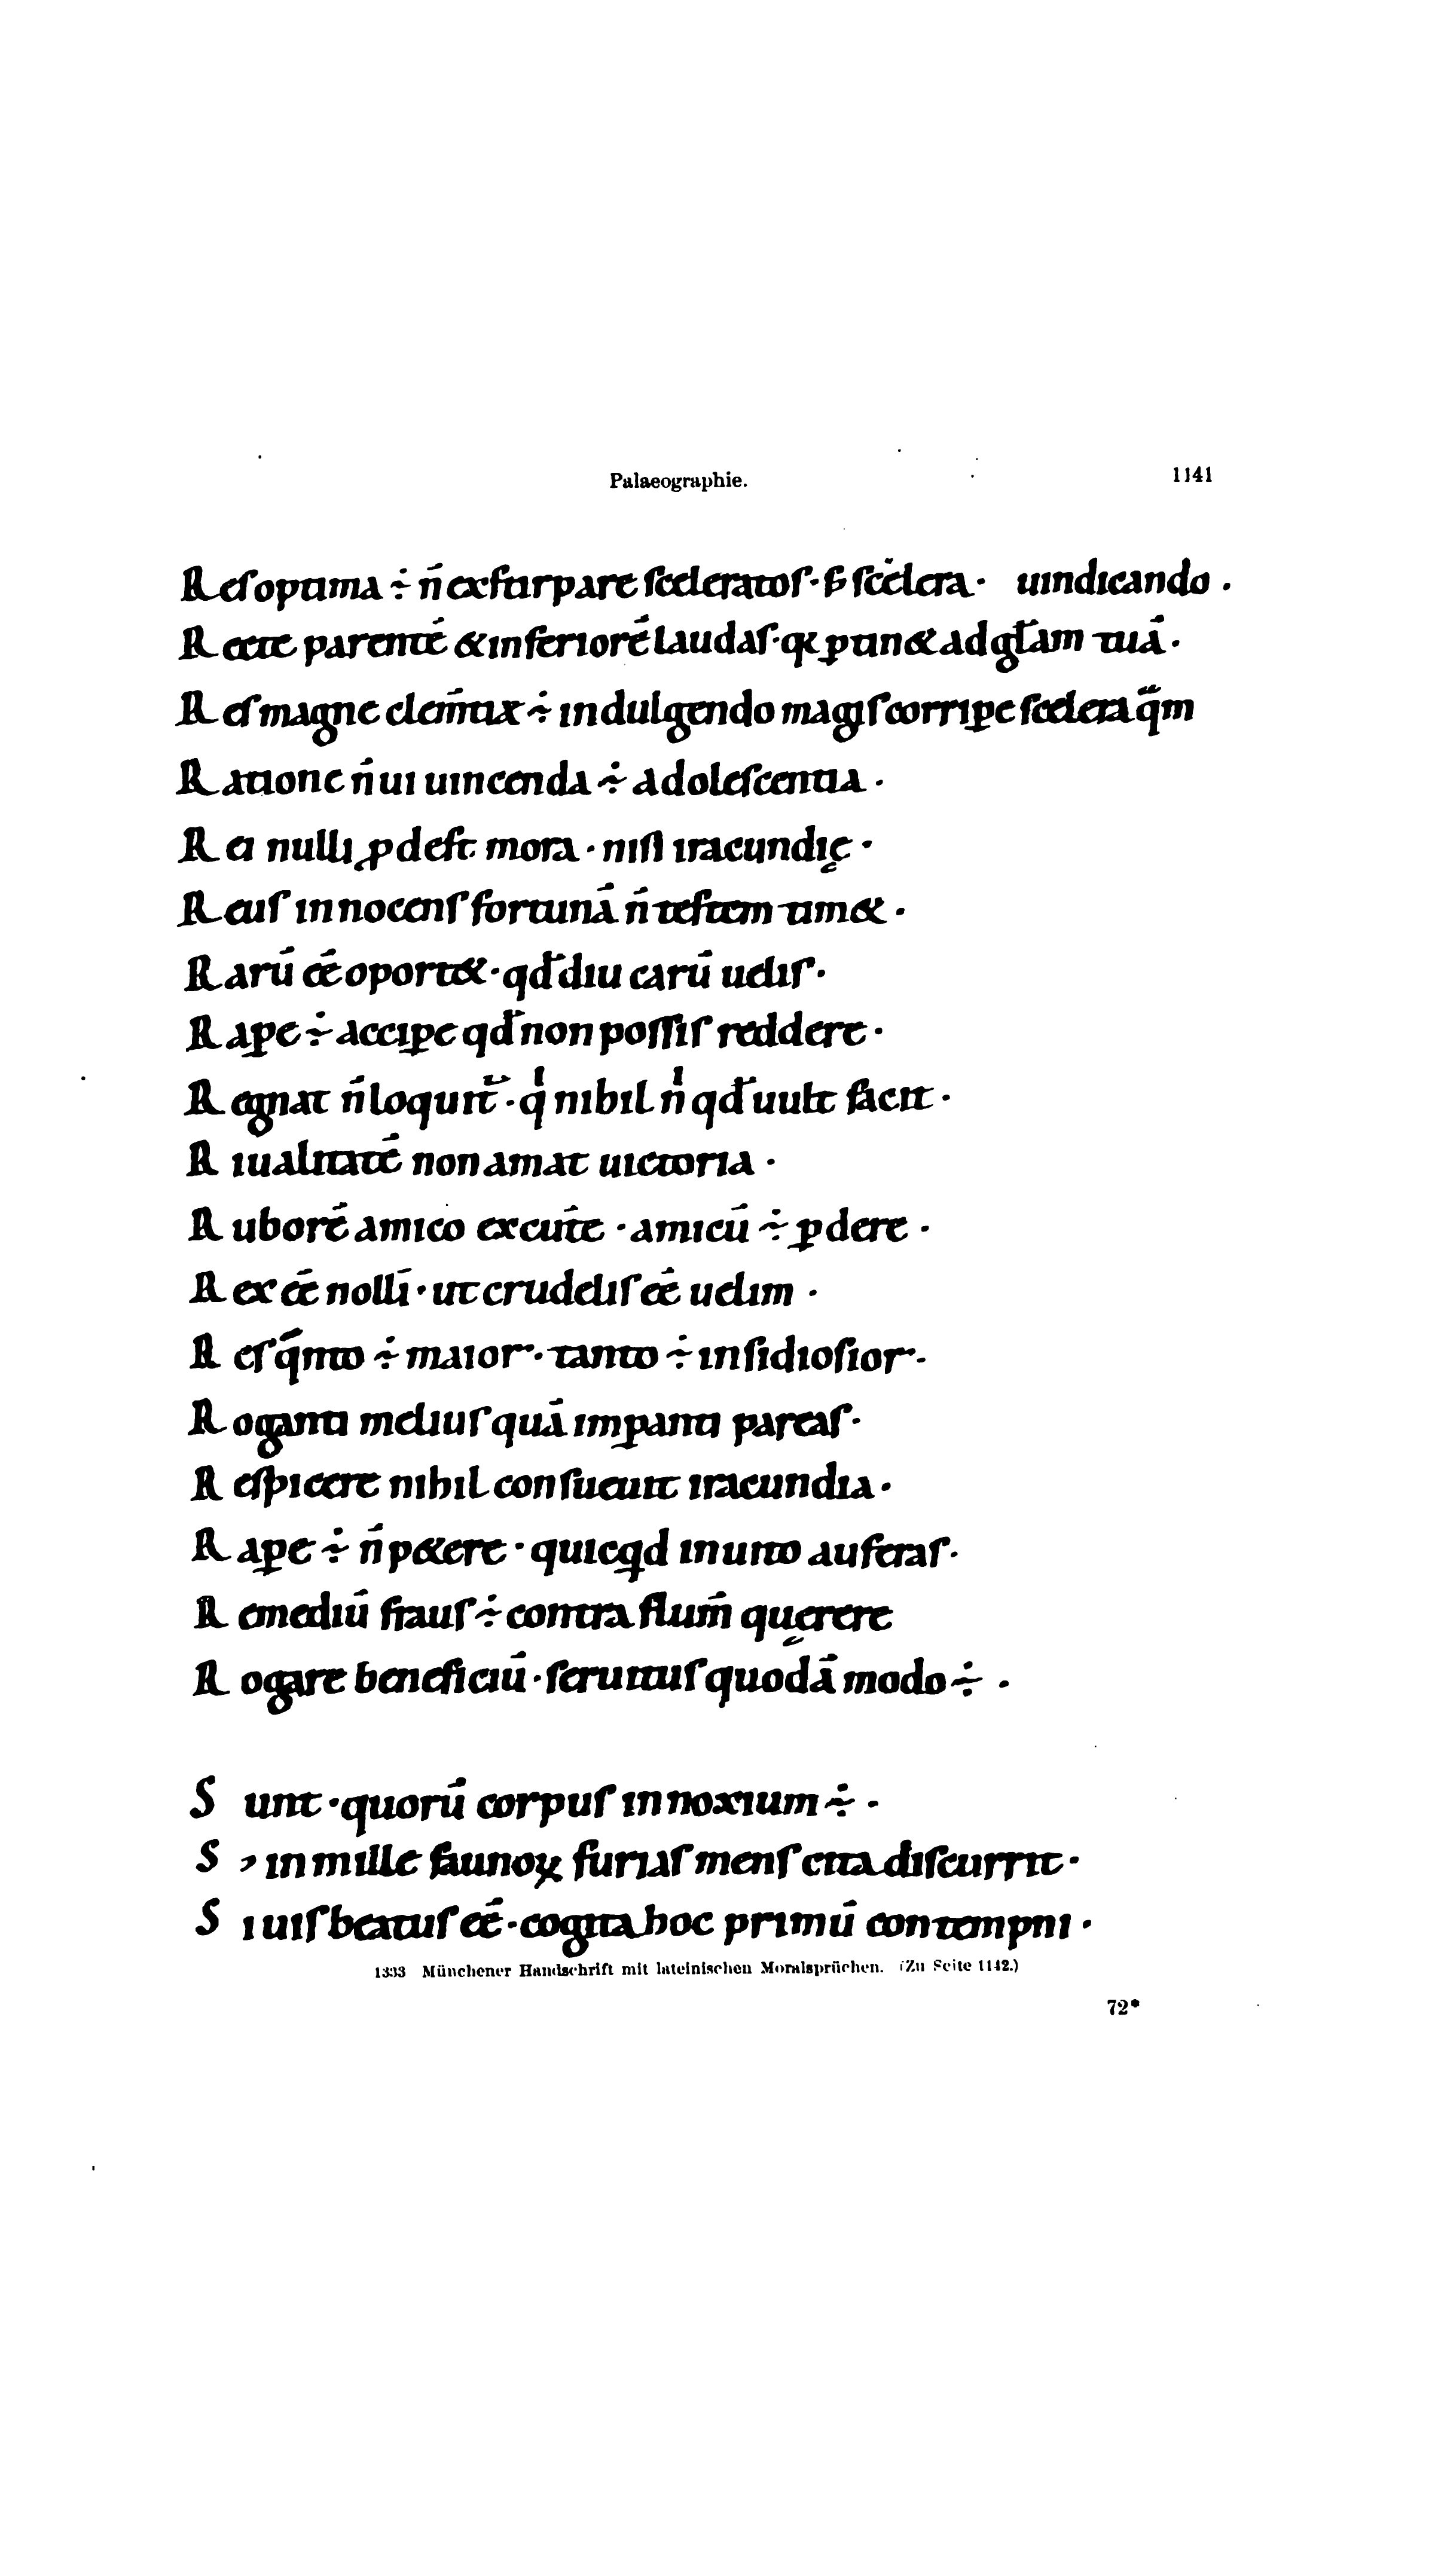 Palaeographie. 1141
Reſ optima ÷ n̄ exſtirpare ſceleratoſ · s̄; ſcelera · uindicando .
Recte parenté & inferioré laudaſ · q&ptin& ad gl̃am tuā .
Reſ magne clem̄tiæ ÷ indulgendo magiſ corripe ſcelera q̄m
Ratione n̄ ui uincenda ÷ adoleſcentia .
Rei nulli ꝓdeſt mora · niſi iracundię ·
Reuſ innocenſ fortunā n̄ teſtem tim& .
Rarū eē oport& · qđ diu carū ueliſ .
Rape ÷ accipe qđ non poſſiſ reddere .
Regnat n̄ loquit᷑ · qⁱ nihil nⁱ qđ uult facit .
Riualitatē non amat uictoria .
Ruborē amico excut̄e · amicū ÷ ꝑdere .
Rex eē nolī · ut crudeliſ eē uelim .
Reſ q̄nto ÷ maior · tanto ÷ inſidioſior .
Roganti meliuſ quā impanti pareaſ .
Reſpicere nihil conſueuit iracundia .
Rape ÷ n̄ p&ere · quicqd inuito auferaſ .
Remediū frauſ ÷ contra flum̄ quęrere
Rogare beneficiū · ſeruituſ quodā modo ÷ .
Sunt · quorū corpuſ innoxium ÷ .
S, in mille faunoꝝ furiaſ menſ cita diſcurrit .
Si uiſ beatuſ eē · cogita hoc primū contempni .
1333 Münchener Handschrift mit lateinischen Moralsprüchen. (Zu Seite 1142.)
72*